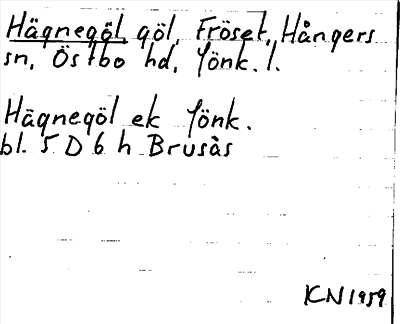 Hägnegöl göl, Fröset, Hångers
sn, Östbo hd, Jönk. l.
Hägnegöl ek Jönk.
bl. 5 D 6 h Brusås
KN 1959